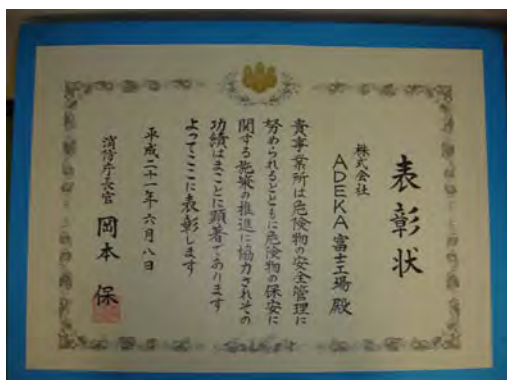 表彰状
株式会社
ADEKA富士工場殿
貴事業所は危険物の安全管理に
努められるとともに危険物の保安に
関する施策の推進に協力されその
功績はまことに顕著であります
よってここに表彰します
平成二十一年六月八日
消防庁長官 岡本保